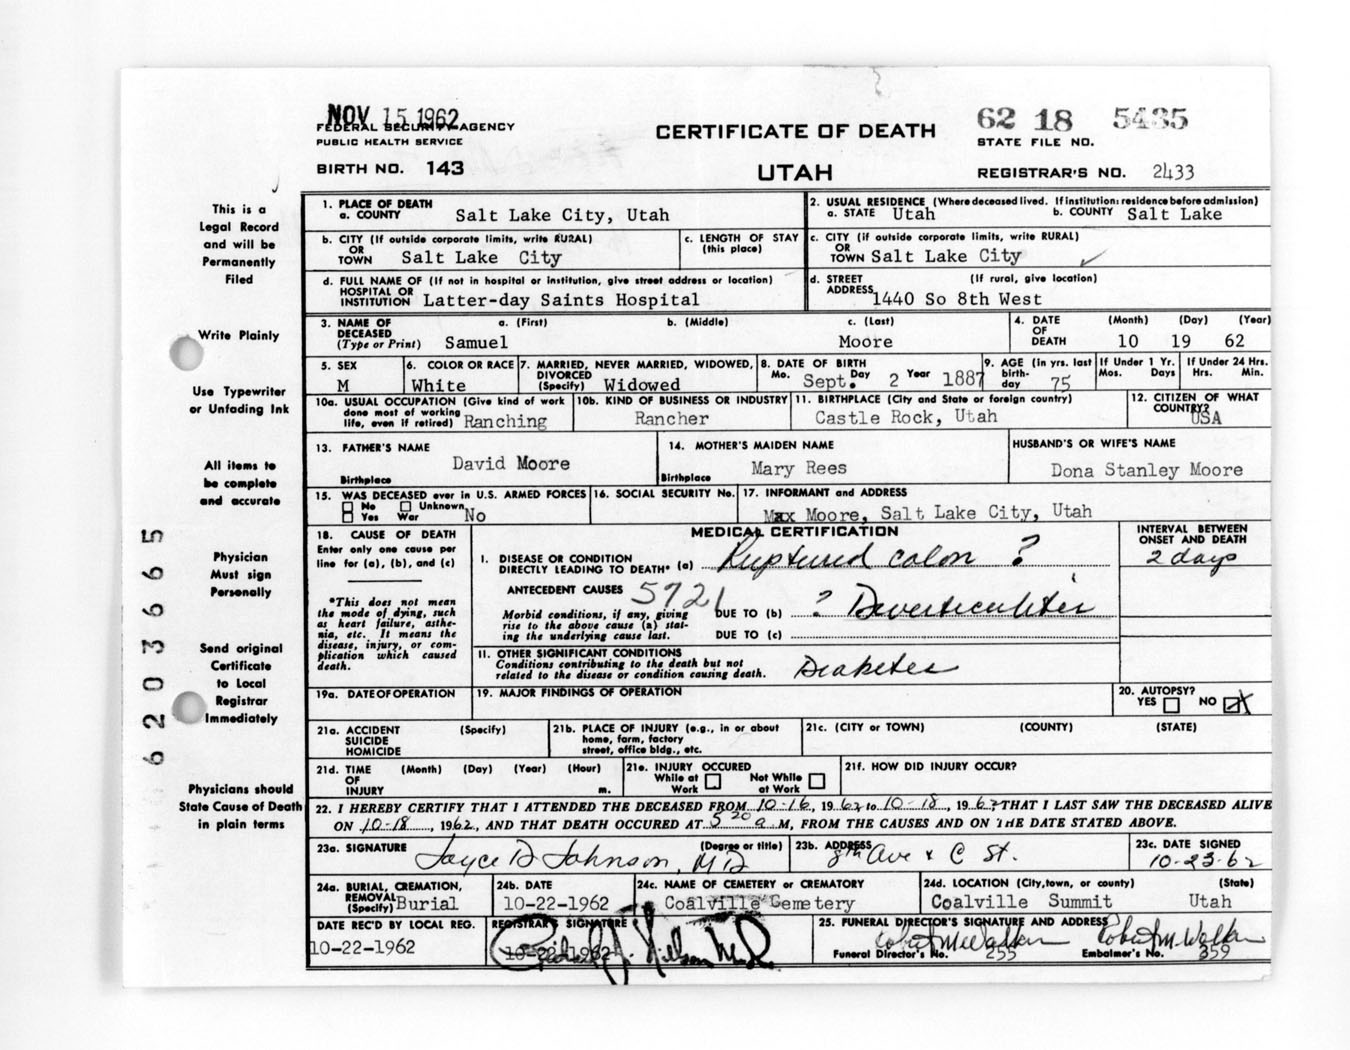 NOV 15 1962
FEDERAL SECURITY AGENCY
PUBLIC HEALTH SERVICE
BIRTH NO. 143
CERTIFICATE OF DEATH
UTAH
62 18 5435
STATE FILE NO.
REGISTRAR'S NO. 2433
This is a
Legal Record
and will be
Permanently
Filed
Write Plainly
Use Typewriter
or Unfading Ink
All items to
be complete
and accurate
Physician
Must sign
Personally
Send original
Certificate
to Local
Registrar
Immediately
Physicians should
State Cause of Death
in plain terms
620 3665
1. PLACE OF DEATH
a. COUNTY Salt Lake City, Utah
2. USUAL RESIDENCE (Where deceased lived. If institution: residence before admission)
a. STATE Utah b. COUNTY Salt Lake
b. CITY (If outside corporate limits, write RURAL)
OR
TOWN Salt Lake City
c. LENGTH OF STAY
(this place)
c. CITY (if outside corporate limits, write RURAL)
OR
TOWN Salt Lake City
d. FULL NAME OF (If not in hospital or institution, give street address or location)
HOSPITAL OR
INSTITUTION Latter-day Saints Hospital
d. STREET (If rural, give location)
ADDRESS 1440 So 8th West
3. NAME OF DECEASED a. (First) b. (Middle) c. (Last)
(Type or Print) Samuel Moore
4. DATE OF DEATH (Month) (Day) (Year)
10 19 62
5. SEX
M
6. COLOR OR RACE
White
7. MARRIED, NEVER MARRIED, WIDOWED,
DIVORCED
(Specify) Widowed
8. DATE OF BIRTH
Mo. Sept. Day 2 Year 1887
9. AGE (in yrs. last
birth-
day 75
If Under 1 Yr.
Mos. Days
If Under 24 Hrs.
Hrs. Min.
10a. USUAL OCCUPATION (Give kind of work
done most of working
life, even if retired) Ranching
10b. KIND OF BUSINESS OR INDUSTRY
Rancher
11. BIRTHPLACE (City and State or foreign country)
Castle Rock, Utah
12. CITIZEN OF WHAT
COUNTRY?
USA
13. FATHER'S NAME
David Moore
Birthplace
14. MOTHER'S MAIDEN NAME
Mary Rees
Birthplace
HUSBAND'S OR WIFE'S NAME
Dona Stanley Moore
15. WAS DECEASED ever in U.S. ARMED FORCES
No Unknown
Yes War No
16. SOCIAL SECURITY No.
17. INFORMANT and ADDRESS
Max Moore, Salt Lake City, Utah
18. CAUSE OF DEATH
Enter only one cause per
line for (a), (b), and (c)
*This does not mean
the mode of dying, such
as heart failure, asthe-
nia, etc. It means the
disease, injury, or com-
plication which caused
death.
MEDICAL CERTIFICATION
INTERVAL BETWEEN
ONSET AND DEATH
I. DISEASE OR CONDITION
DIRECTLY LEADING TO DEATH* (a) Ruptured colon ?
2 days
ANTECEDENT CAUSES 5721
Morbid conditions, if any, giving
rise to the above cause (a) stat-
ing the underlying cause last.
DUE TO (b) ? Diverticulitis
DUE TO (c)
II. OTHER SIGNIFICANT CONDITIONS
Conditions contributing to the death but not
related to the disease or condition causing death.
Diabetes
19a. DATE OF OPERATION
19. MAJOR FINDINGS OF OPERATION
20. AUTOPSY?
YES NO X
21a. ACCIDENT (Specify)
SUICIDE
HOMICIDE
21b. PLACE OF INJURY (e.g., in or about
home, farm, factory
street, office bldg., etc.
21c. (CITY or TOWN) (COUNTY) (STATE)
21d. TIME (Month) (Day) (Year) (Hour)
OF
INJURY m.
21e. INJURY OCCURED
While at Work Not While at Work
21f. HOW DID INJURY OCCUR?
22. I HEREBY CERTIFY THAT I ATTENDED THE DECEASED FROM 10-16, 1962 to 10-18, 1962 THAT I LAST SAW THE DECEASED ALIVE
ON 10-18, 1962, AND THAT DEATH OCCURED AT 5 20 a M, FROM THE CAUSES AND ON THE DATE STATED ABOVE.
23a. SIGNATURE (Degree or title)
Joyce D Johnson, MD
23b. ADDRESS
8th Ave & C St.
23c. DATE SIGNED
10-23-62
24a. BURIAL, CREMATION,
REMOVAL
(Specify) Burial
24b. DATE
10-22-1962
24c. NAME OF CEMETERY or CREMATORY
Coalville Cemetery
24d. LOCATION (City, town, or county) (State)
Coalville Summit Utah
DATE REC'D BY LOCAL REG.
10-22-1962
REGISTRAR'S SIGNATURE
10-22-1962
25. FUNERAL DIRECTOR'S SIGNATURE AND ADDRESS
Robert M Walker Robert M. Walker
Funeral Director's No. 255 Embalmer's No. 359